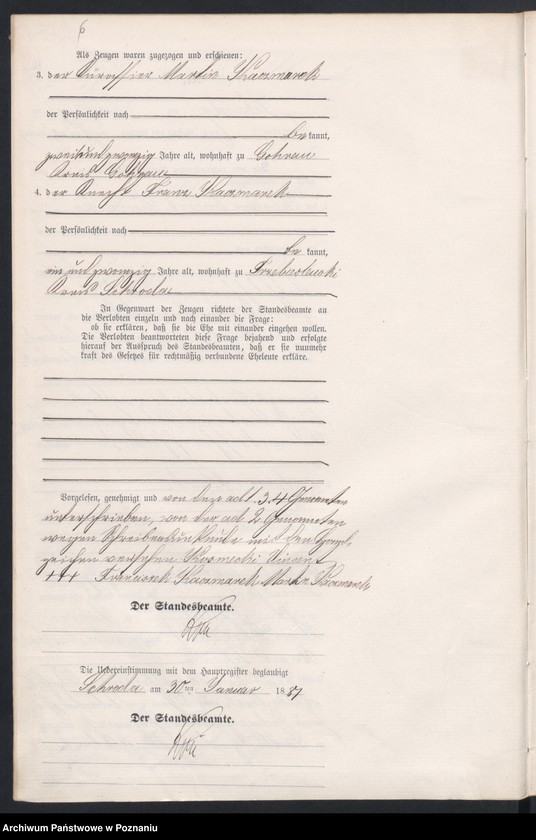 6
Als Zeugen waren zugezogen und erschienen:
3. der Kürassier Martin Kaczmarek
der Persönlichkeit nach
be kannt,
zweiundzwanzig Jahre alt, wohnhaft zu
Kreis
4. der Knecht Franz Kaczmarek
der Persönlichkeit nach
be kannt,
ein und zwanzig Jahre alt, wohnhaft zu
Kreis Schroda
In Gegenwart der Zeugen richtete der Standesbeamte an
die Verlobten einzeln und nach einander die Frage:
ob sie erklären, daß sie die Ehe mit einander eingehen wollen.
Die Verlobten beantworteten diese Frage bejahend und erfolgte
hierauf der Ausspruch des Standesbeamten, daß er sie nunmehr
kraft des Gesetzes für rechtmäßig verbundene Eheleute erkläre.
Vorgelesen, genehmigt und von den ad 1. 3. 4 Genannten
unterschrieben, von der ad 2 Genannten
wegen Schreibensunkunde mit den Hand-
zeichen versehen
+++ Franciszek Kaczmarek Martin Kaczmarek
Der Standesbeamte.
Die Uebereinstimmung mit dem Hauptregister beglaubigt
Schroda am 30ten Januar 1887
Der Standesbeamte.
Archiwum Państwowe w Poznaniu